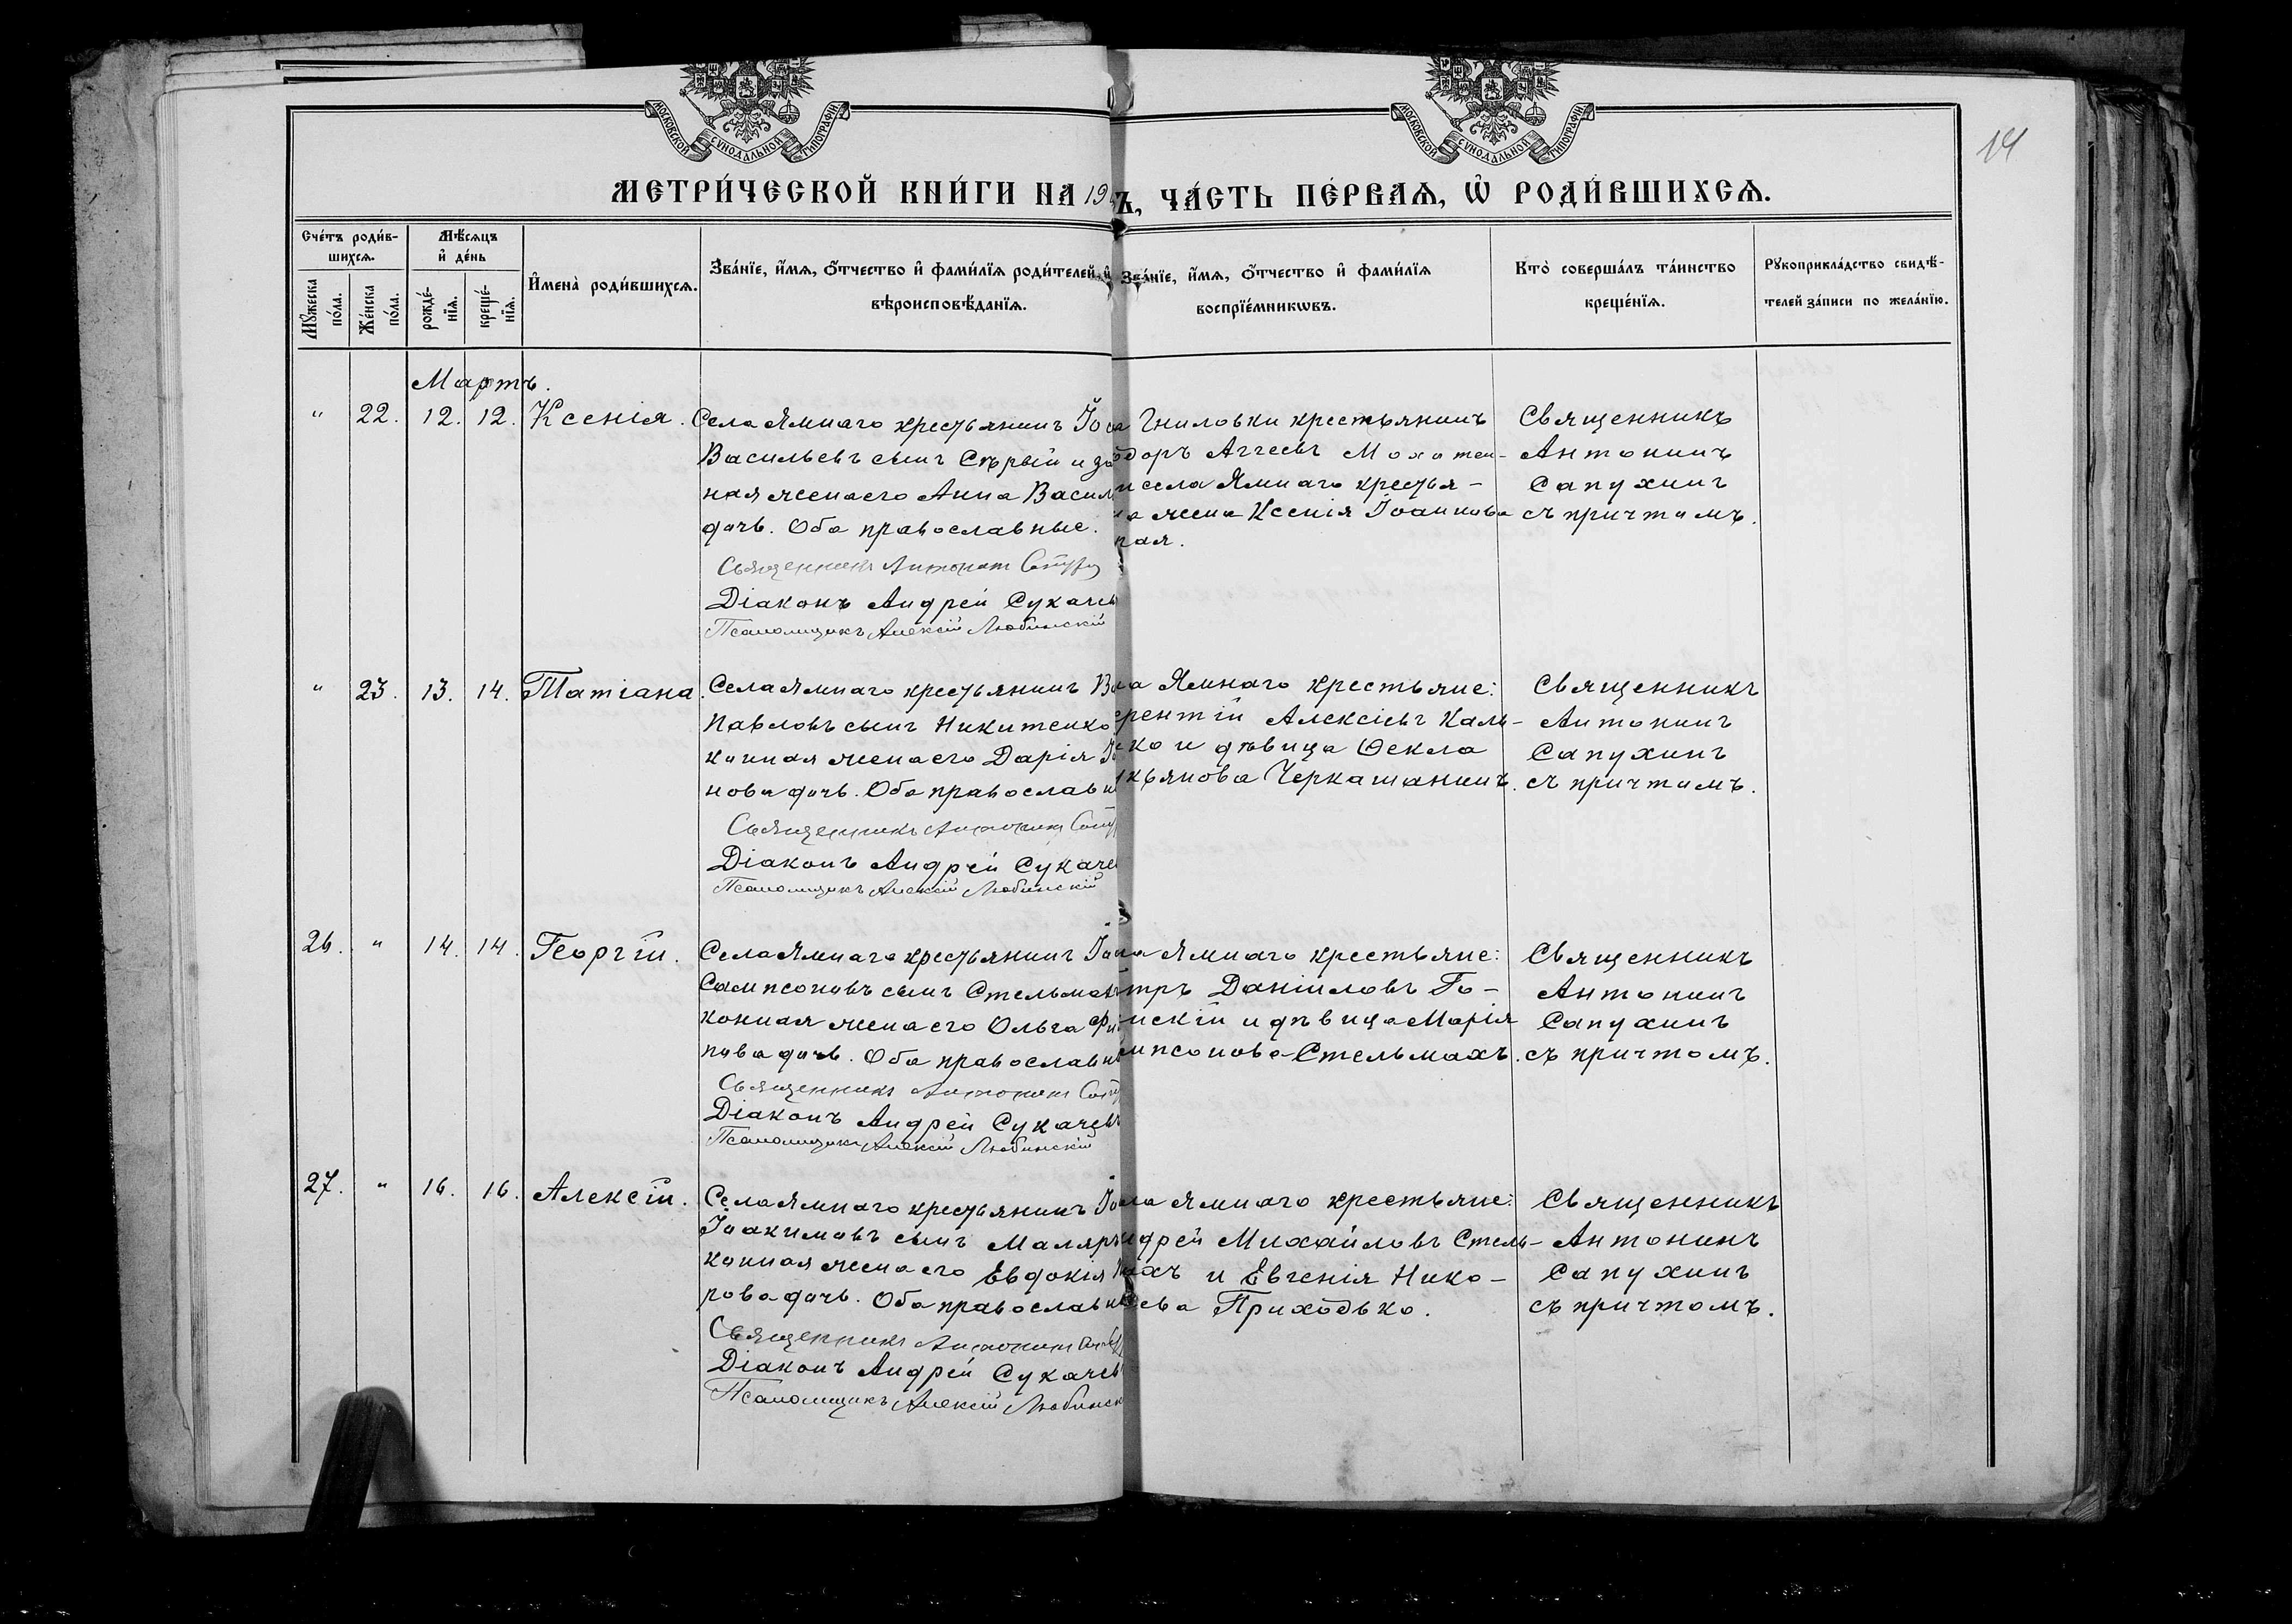 МОСКОВСКОЙ СУНОДАЛЬНОЙ ТИПОГРАФІИ
МОСКОВСКОЙ СУНОДАЛЬНОЙ ТИПОГРАФІИ
14
МЕТРИ́ЧЕСКОЙ КНИ́ГИ НА 19
Ъ, ЧА́СТЬ ПЕ́РВАѦ, Ѡ҆ РОДИ́ВШИХСѦ.
Сче́тъ роди́в-
шихсѧ.
Мꙋ́жеска по́ла.
Же́нска по́ла.
Мѣ́сѧцъ
и҆ де́нь
рожде́-нїѧ.
креще́-нїѧ.
И҆мена̀ роди́вшихсѧ.
Зва́нїе, и҆́мѧ, ѻ҆́тчество и҆ фами́лїѧ роди́телей, и҆
вѣроисповѣ́данїѧ.
Зва́нїе, и҆́мѧ, ѻ҆́тчество и҆ фами́лїѧ
воспрїе́мникѡвъ.
Кто̀ соверша́лъ та́инство
креще́нїѧ.
Рꙋкоприкла́дство свидѣ́-
телей за́писи по жела́нїю.
Мартъ.
" 22. 12. 12. Ксенія.
Села Ямнаго крестьянинъ
Васильевъ сынъ Сѣрый и
ная жена его Анна
дочь. Оба православные.
Священникъ Антонинъ
Діаконъ Андрей
Псаломщикъ Алексій Любинскій
Гниловки крестьянинъ
Аггеевъ
села Ямнаго крестья-
жена Ксенія Іоаннова
ная.
Священникъ
Антонинъ
Сапухинъ
съ причтомъ.
" 23. 13. 14. Татіана.
Села Ямнаго крестьянинъ
Павловъ сынъ Никитенко
конная жена его Дарія
нова дочь. Оба
Священникъ Антонинъ
Діаконъ Андрей
Псаломщикъ Алексій Любинскій
Ямнаго крестьяне:
Алексіевъ Каль-
ко и дѣвица Ѳекла
Черкашанинъ.
Священникъ
Антонинъ
Сапухинъ
съ причтомъ.
26. " 14. 14. Георгій.
Села Ямнаго крестьянинъ
Сампсоновъ сынъ
конная жена его Ольга
пова дочь. Оба
Священникъ Антонинъ
Діаконъ Андрей
Псаломщикъ Алексій Любинскій
Ямнаго крестьяне:
Даніиловъ Го-
и дѣвица Марія
Стельмахъ.
Священникъ
Антонинъ
Сапухинъ
съ причтомъ.
27. " 16. 16. Алексій.
Села Ямнаго крестьянинъ
Іоакимовъ сынъ Маляръ
конная жена его Евдокія
рова дочь. Оба
Священникъ Антонинъ
Діаконъ Андрей
Псаломщикъ Алексій
Ямнаго крестьяне:
Михайловъ Стель-
махъ и Евгенія Нико-
Приходько.
Священникъ
Антонинъ
Сапухинъ
съ причтомъ.